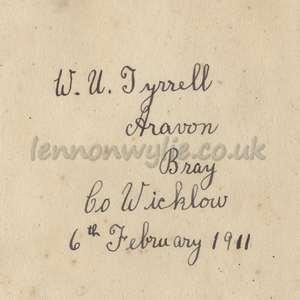 W. U. Tyrrell
Aravon
lennonwylie.co.uk
Bray
Co Wicklow
6th February 1911